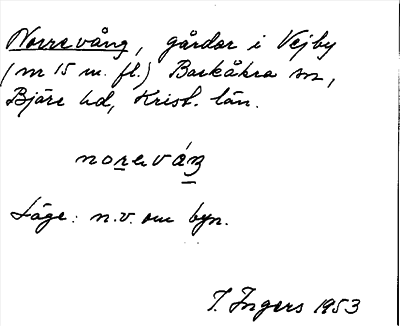 Norrevång, gårdar i Vejby
(nr 15 m. fl.) Barkåkra sn,
Bjäre hd, Krist. län.
Läge: n.v. om byn.
I. Ingers 1953